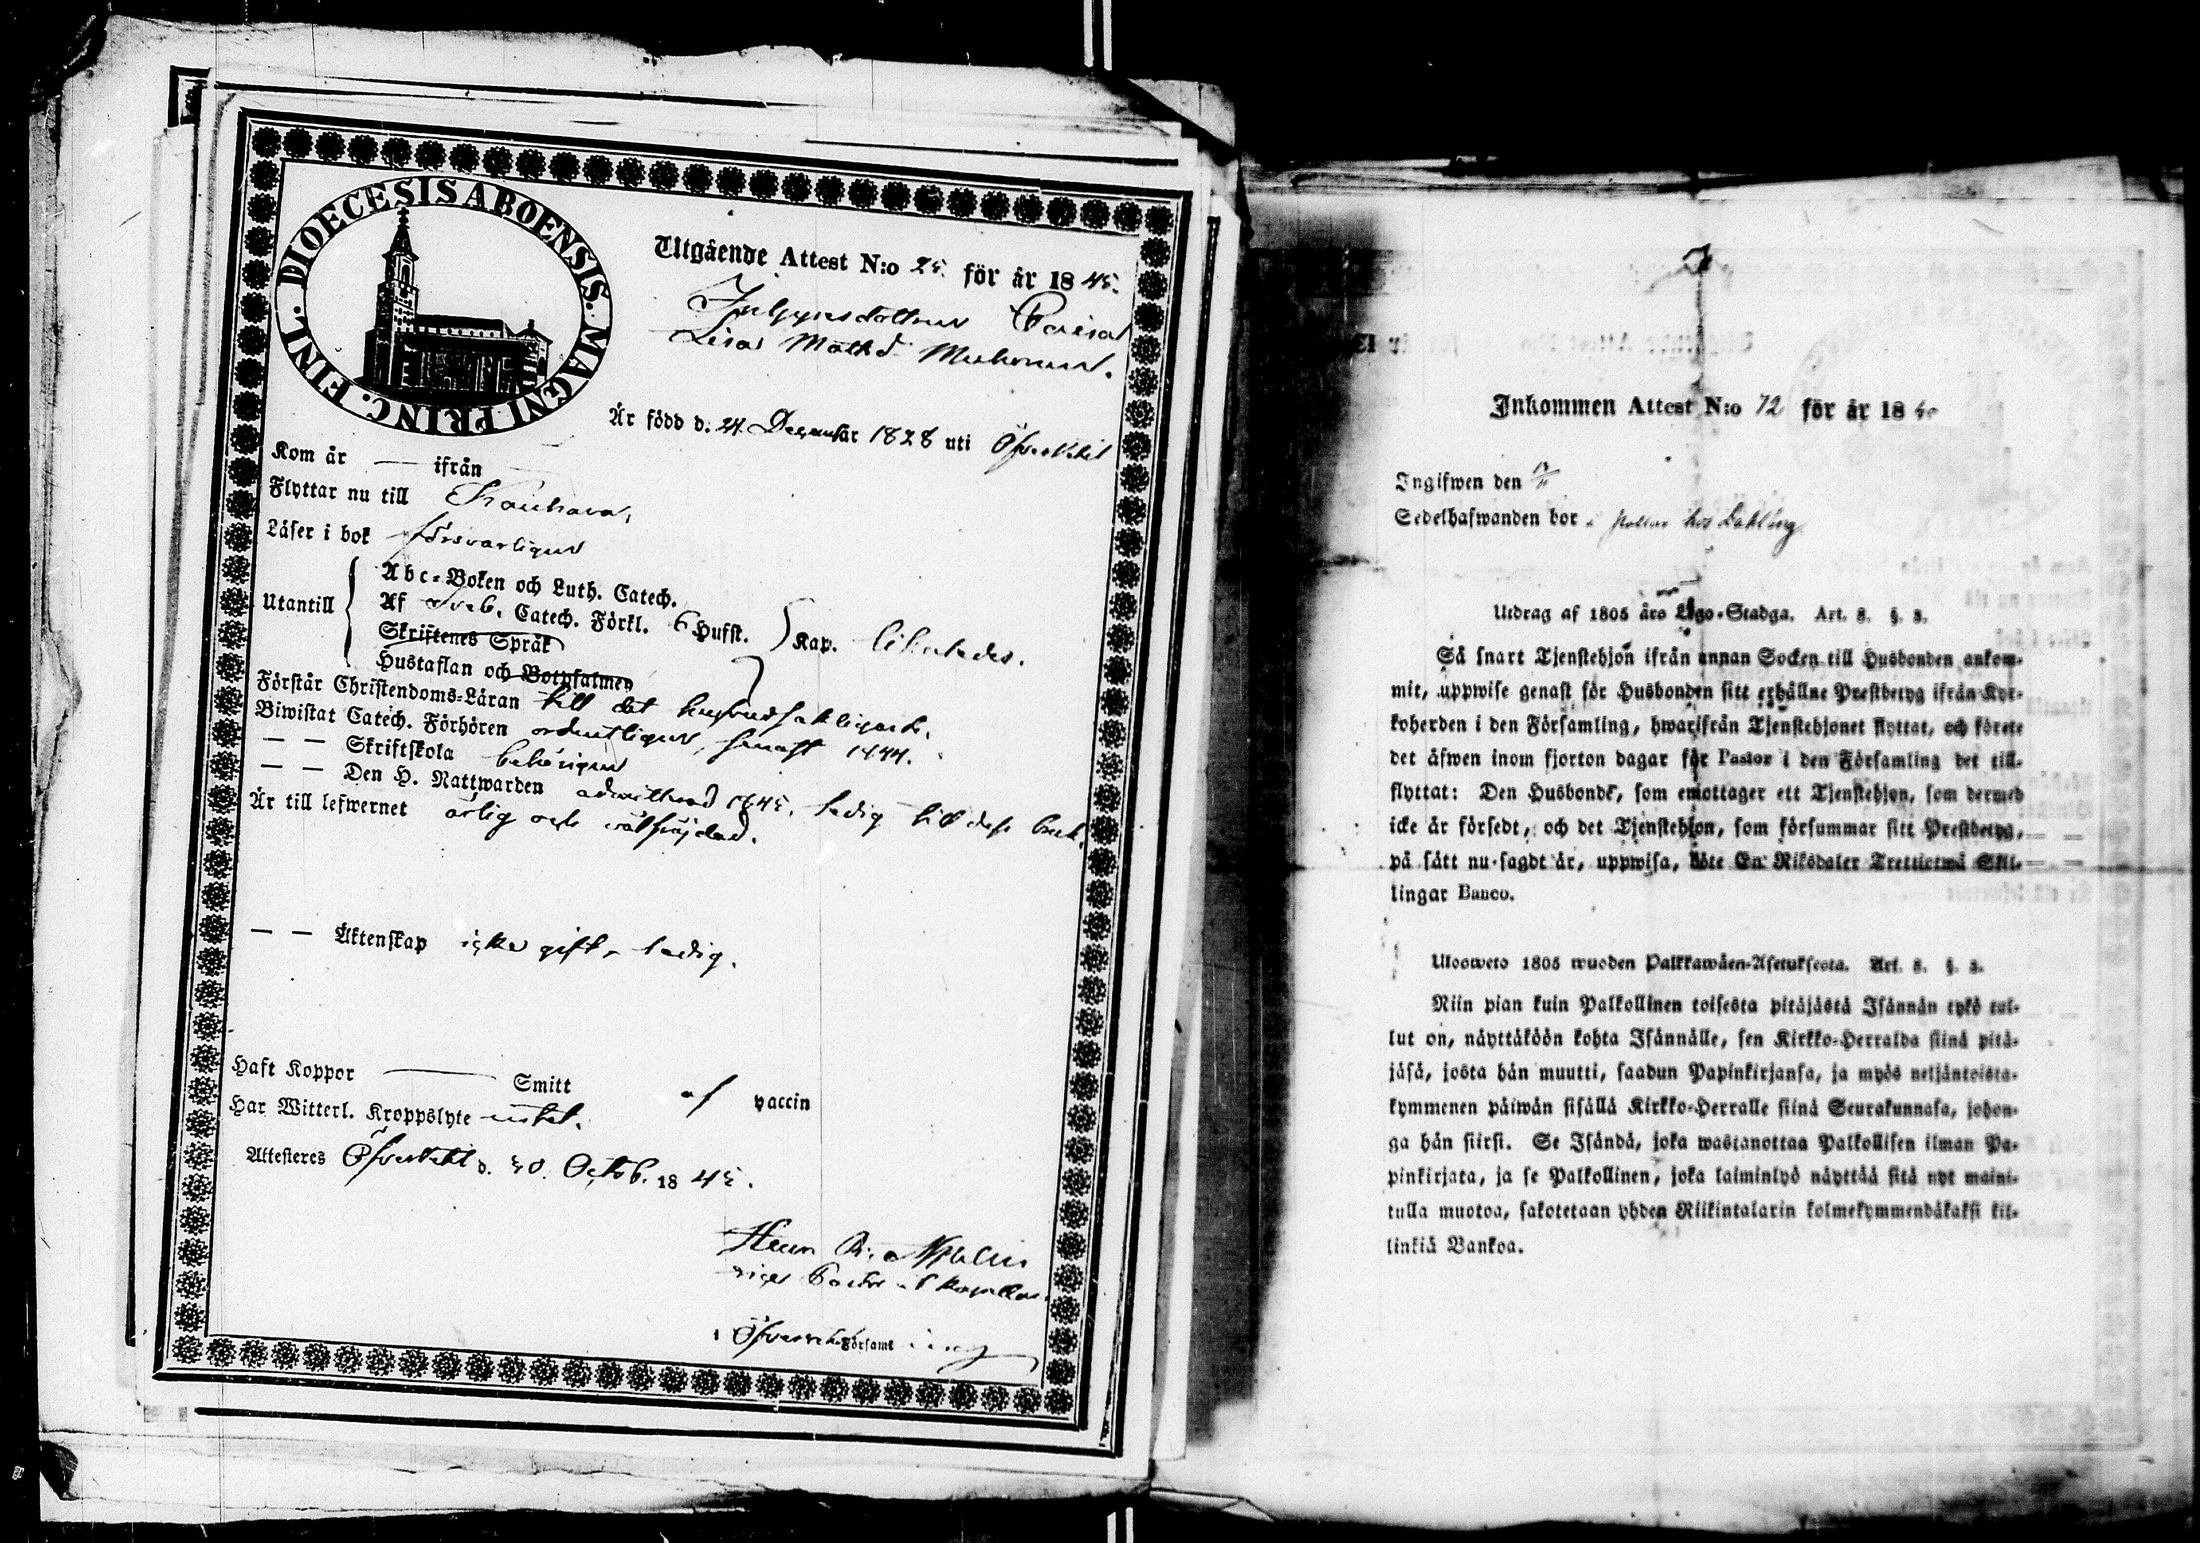 DIOECESIS ABOENSIS. MAGNI PRINC. FINL.
Utgående Attest N:o 25. för år 1845.
Lisa Math:d
Är född d. 24 December 1828 uti Öfvervetil
Kom år — ifrån —
Flyttar nu till Kauhava,
Läser i bok försvarligen
Utantill
Abc-Boken och Luth. Catech.
Af Sveb. Catech. Förkl. 6 Hufst. Kap.
Skriftenes Språk
Hustaflan och Botpsalmen
Förstår Christendoms-Läran till det hufvudsakligaste.
Biwistat Catech. Förhören ordentligen, senast 1844.
— — Skriftskola behörigen
— — Den H. Nattwarden admitterad 1845, ledig till dess bruk.
Är till lefwernet ärlig och välfrejdad.
— — Äktenskap icke gift, ledig.
Haft Koppor — Smitt af vaccin
Har Witterl. Kroppslyte intet.
Attesteras Öfvervetil d. 30. Octob. 1845.
Öfvervetil Församling
Inkommen Attest N:o 72 för år 18
Ingifwen den
Sedelhafwanden bor hos Dahling
Utdrag af 1805 års Lego-Stadga. Art. 8. §. 3.
Så snart Tjenstehjon ifrån annan Socken till Husbonden ankom-
mit, uppwise genast för Husbonden sitt erhållne Prestbetyg ifrån Kyr-
koherden i den Församling, hwarifrån Tjenstehjonet flyttat, och förete
det äfwen inom fjorton dagar för Pastor i den Församling det till-
flyttat: Den Husbonde, som emottager ett Tjenstehjon, som dermed
icke är försedt, och det Tjenstehjon, som försummar sitt Prestbetyg,
på sätt nu sagdt är, uppwisa, böte En Riksdaler Trettiotwå Skil-
lingar Banco.
Ulosweto 1805 wuoden Palkkawäen-Asetuksesta. Art. 8. §. 3.
Niin pian kuin Palkollinen toisesta pitäjästä Isännän tykö tul-
lut on, näyttäköön kohta Isännälle, sen Kirkko-Herralda siinä pitä-
jäsä, josta hän muutti, saadun Papinkirjansa, ja myös neljäntoista-
kymmenen päiwän sisällä Kirkko-Herralle siinä Seurakunnasa, johon-
ga hän siirsi. Se Isändä, joka wastanottaa Palkollisen ilman Pa-
pinkirjata, ja se Palkollinen, joka laiminlyö näyttää sitä nyt maini-
tulla muotoa, sakotetaan yhden Riikintalarin kolmekymmendäkaksi kil-
linkiä Bankoa.